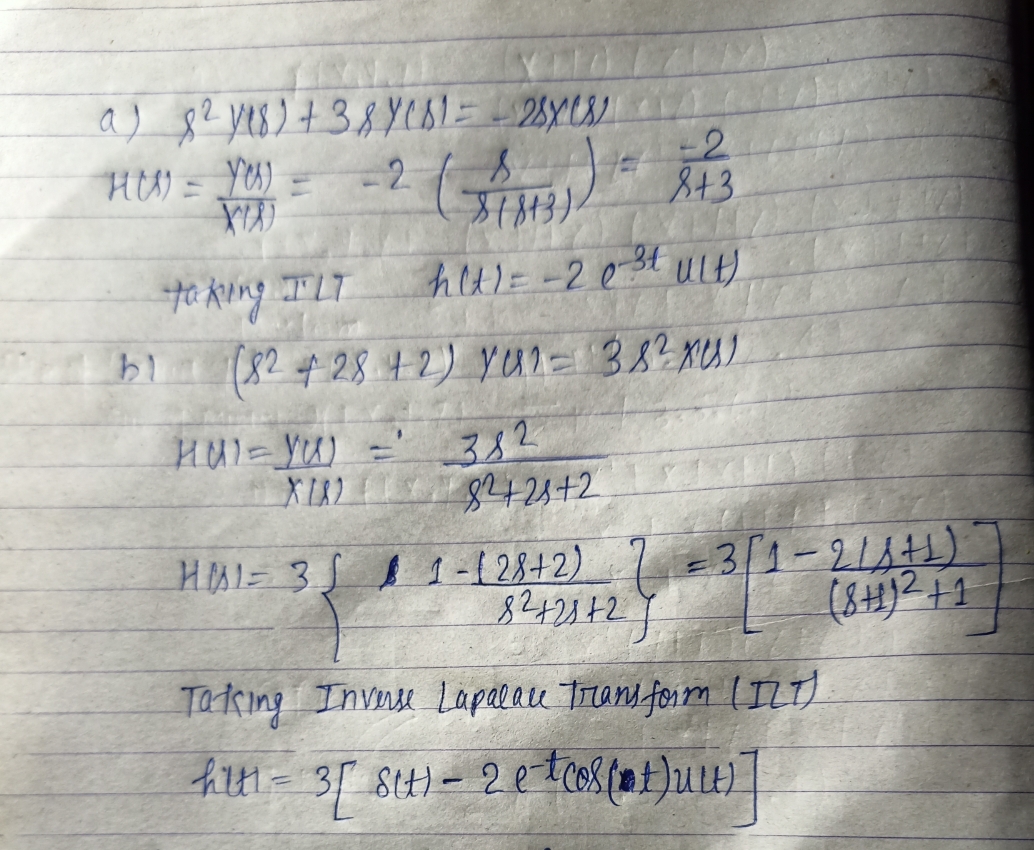 a) s²Y(s) + 3sY(s) = -2sX(s)
H(s) = Y(s)/X(s) = -2 (s/s(s+3)) = -2/s+3
taking ILT h(t) = -2 e^-3t u(t)
b) (s² + 2s + 2) Y(s) = 3s² X(s)
H(s) = Y(s)/X(s) = 3s²/s²+2s+2
H(s) = 3{ 1 - (2s+2)/s²+2s+2 } = 3[1 - 2(s+1)/(s+1)²+1]
Taking Inverse Lapalace Transform (ILT)
h(t) = 3[ δ(t) - 2 e^-t cos(t)u(t)]